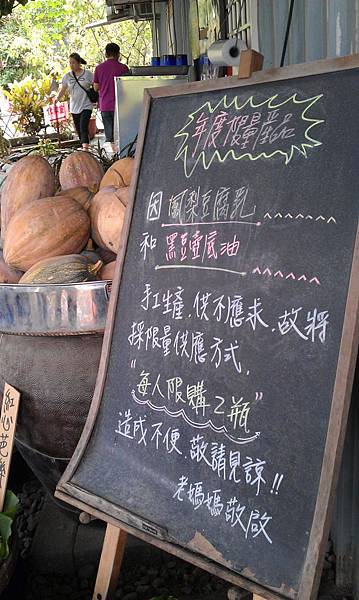 年度限量産品
因鳳梨豆腐乳
和 黑豆壺底油
手工生產.供不應求.故將
採限量供應方式,
"每人限購2瓶"
造成不便.敬請見諒!!
老媽媽敬啟